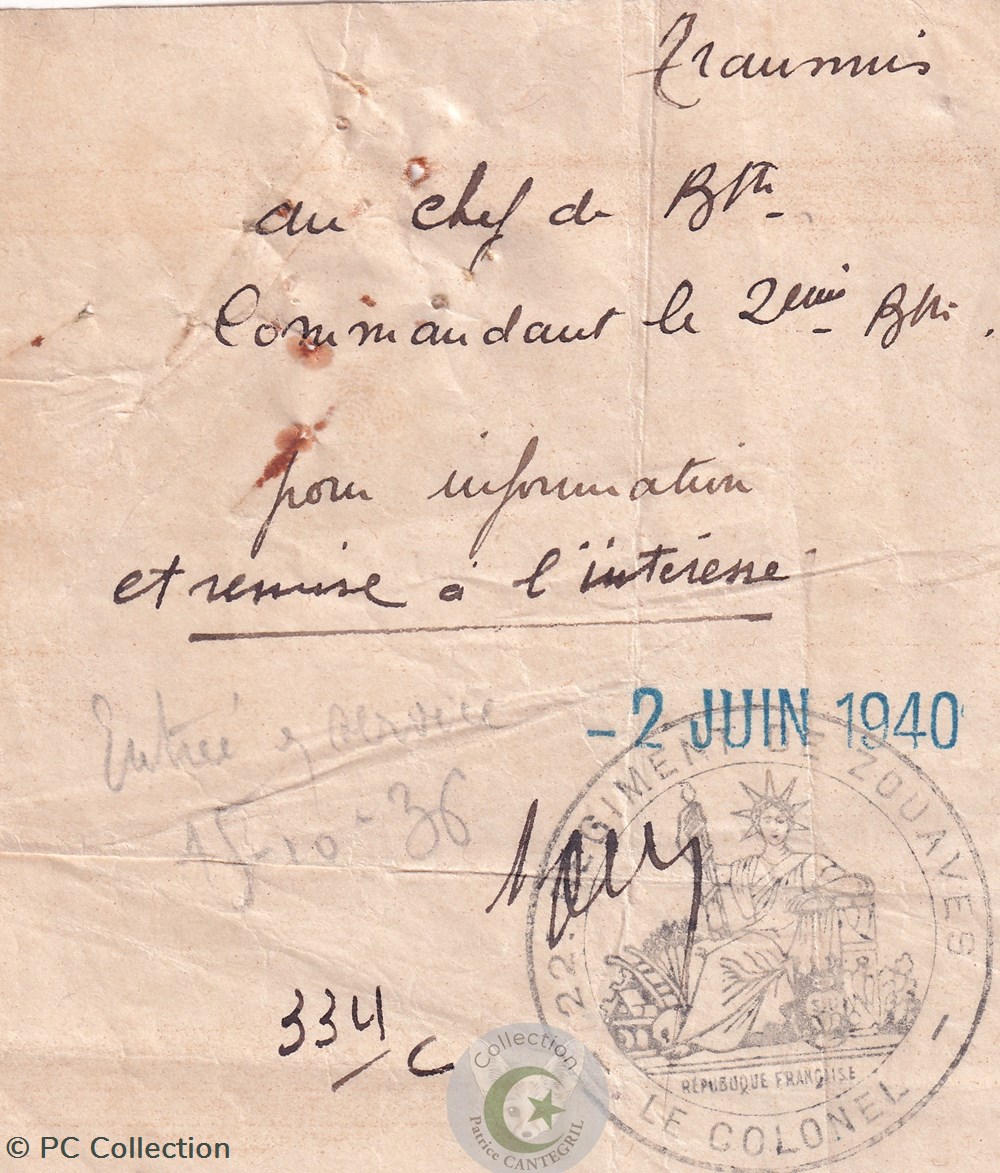 Transmis
au chef de Bton
Commandant le 2ème Bton.
pour information
et remise à l'intéressé
Entrée en service
15-10-36
- 2 JUIN 1940
22. REGIMENT DE ZOUAVES -
RÉPUBLIQUE FRANÇAISE
LE COLONEL -
334/C
Collection
Patrice CANTEGRIL
© PC Collection